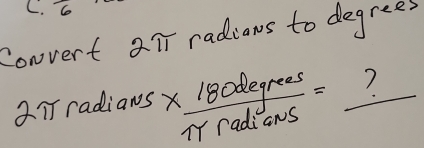 C. /6
Convert 2π radians to degrees
2π radians × 180degrees / π radians = ?